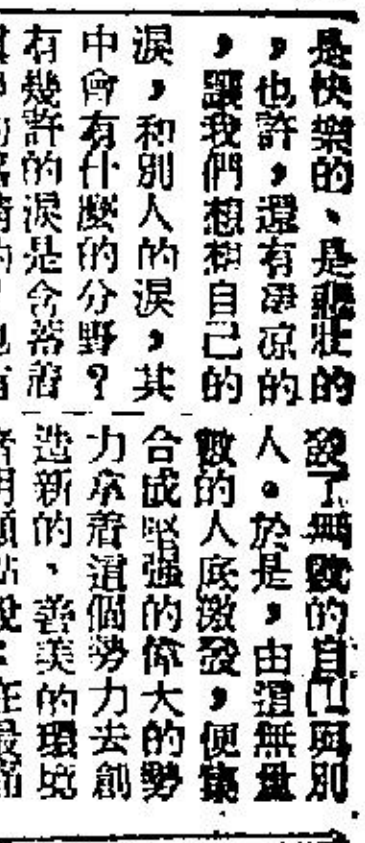 是快樂的、是悲壯的
，也許，還有凄凉的
，讓我們想想自己的
淚，和別人的淚，其
中會有什麼的分野？
有幾許的淚是含蓄着
發了無數的自己與別
人。於是，由這無量
數的人底激發，便集
合成堅強的偉大的勢
力憑着這個勢力去創
造新的、善美的環境